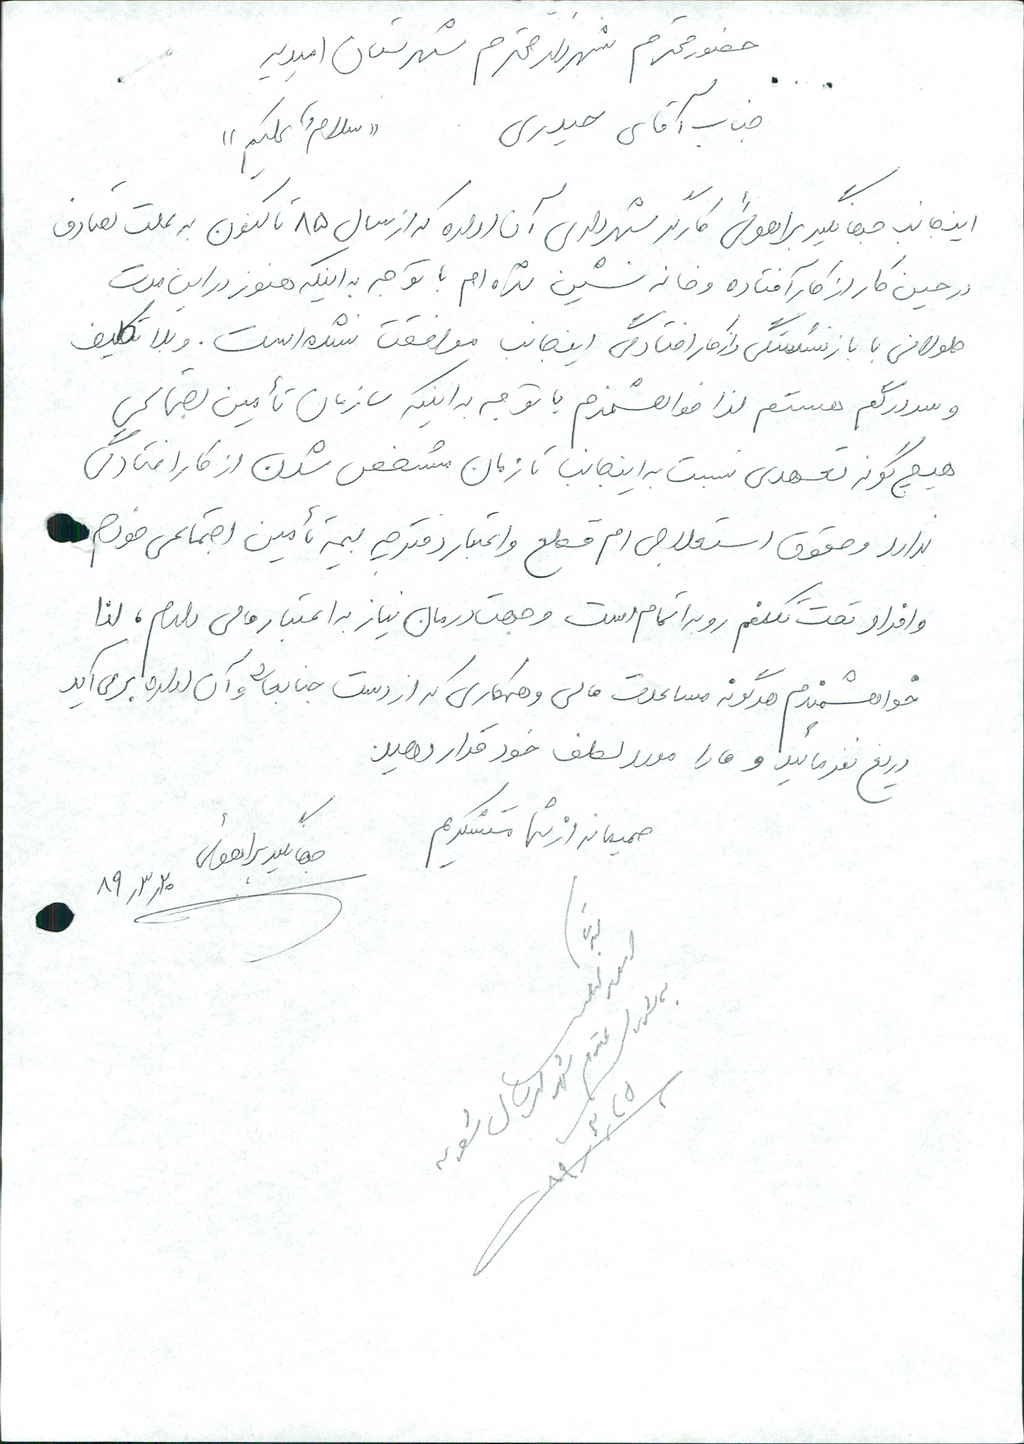 حضور محترم شهردار محترم شهرستان امیدیه
جناب آقای حیدری «سلام و علیکم»
اینجانب جهانگیر براهوئی کارگر شهرداری آن اداره که از سال ۸۵ تا کنون به علت تصادف
در حین کار از کار افتاده و خانه نشین شده ام با توجه به اینکه هنوز در این مدت
طولانی با بازنشستگی و از کار افتادگی اینجانب موافقت نشده است. و بلا تکلیف
و سردرگم هستم لذا خواهشمندم با توجه به اینکه سازمان تأمین اجتماعی
هیچ گونه تعهدی نسبت به اینجانب تا زمان مشخص شدن از کار افتادگی
ندارد و حقوق استعلاجی ام قطع و اعتبار دفترچه بیمه تأمین اجتماعی خودم
و افراد تحت تکلفم رو به اتمام است و جهت درمان نیاز به اعتبار مالی دارم، لذا
خواهشمندم هرگونه مساعدت مالی و همکاری که از دست جنابعالی و آن اداره بر می آید
دریغ نفرمائید و ما را مورد لطف خود قرار دهید
صمیمانه از شما متشکرم
جهانگیر براهوئی
۸۹٫۳٫۲۰